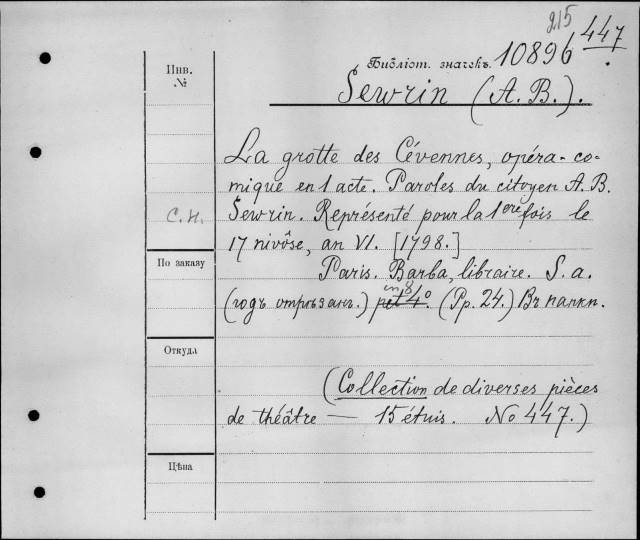 215
447
Библіот. значекъ. 10896
Sewrin (A. B.).
Инв.
№
La grotte des Cévennes, opéra-co-
mique en 1 acte. Paroles du citoyen A. B.
С. Н. Sewrin. Représenté pour la 1ere fois le
17 nivôse, an VI. [1798.]
По заказу
Paris. Barba, libraire. S. a.
in 8
(годъ отрѣзанъ.) pet 4º. (Pp. 24.) Въ папкѣ.
Откуда
(Collection de diverses pièces
de théâtre — 15 étuis. No 447.)
Цѣна